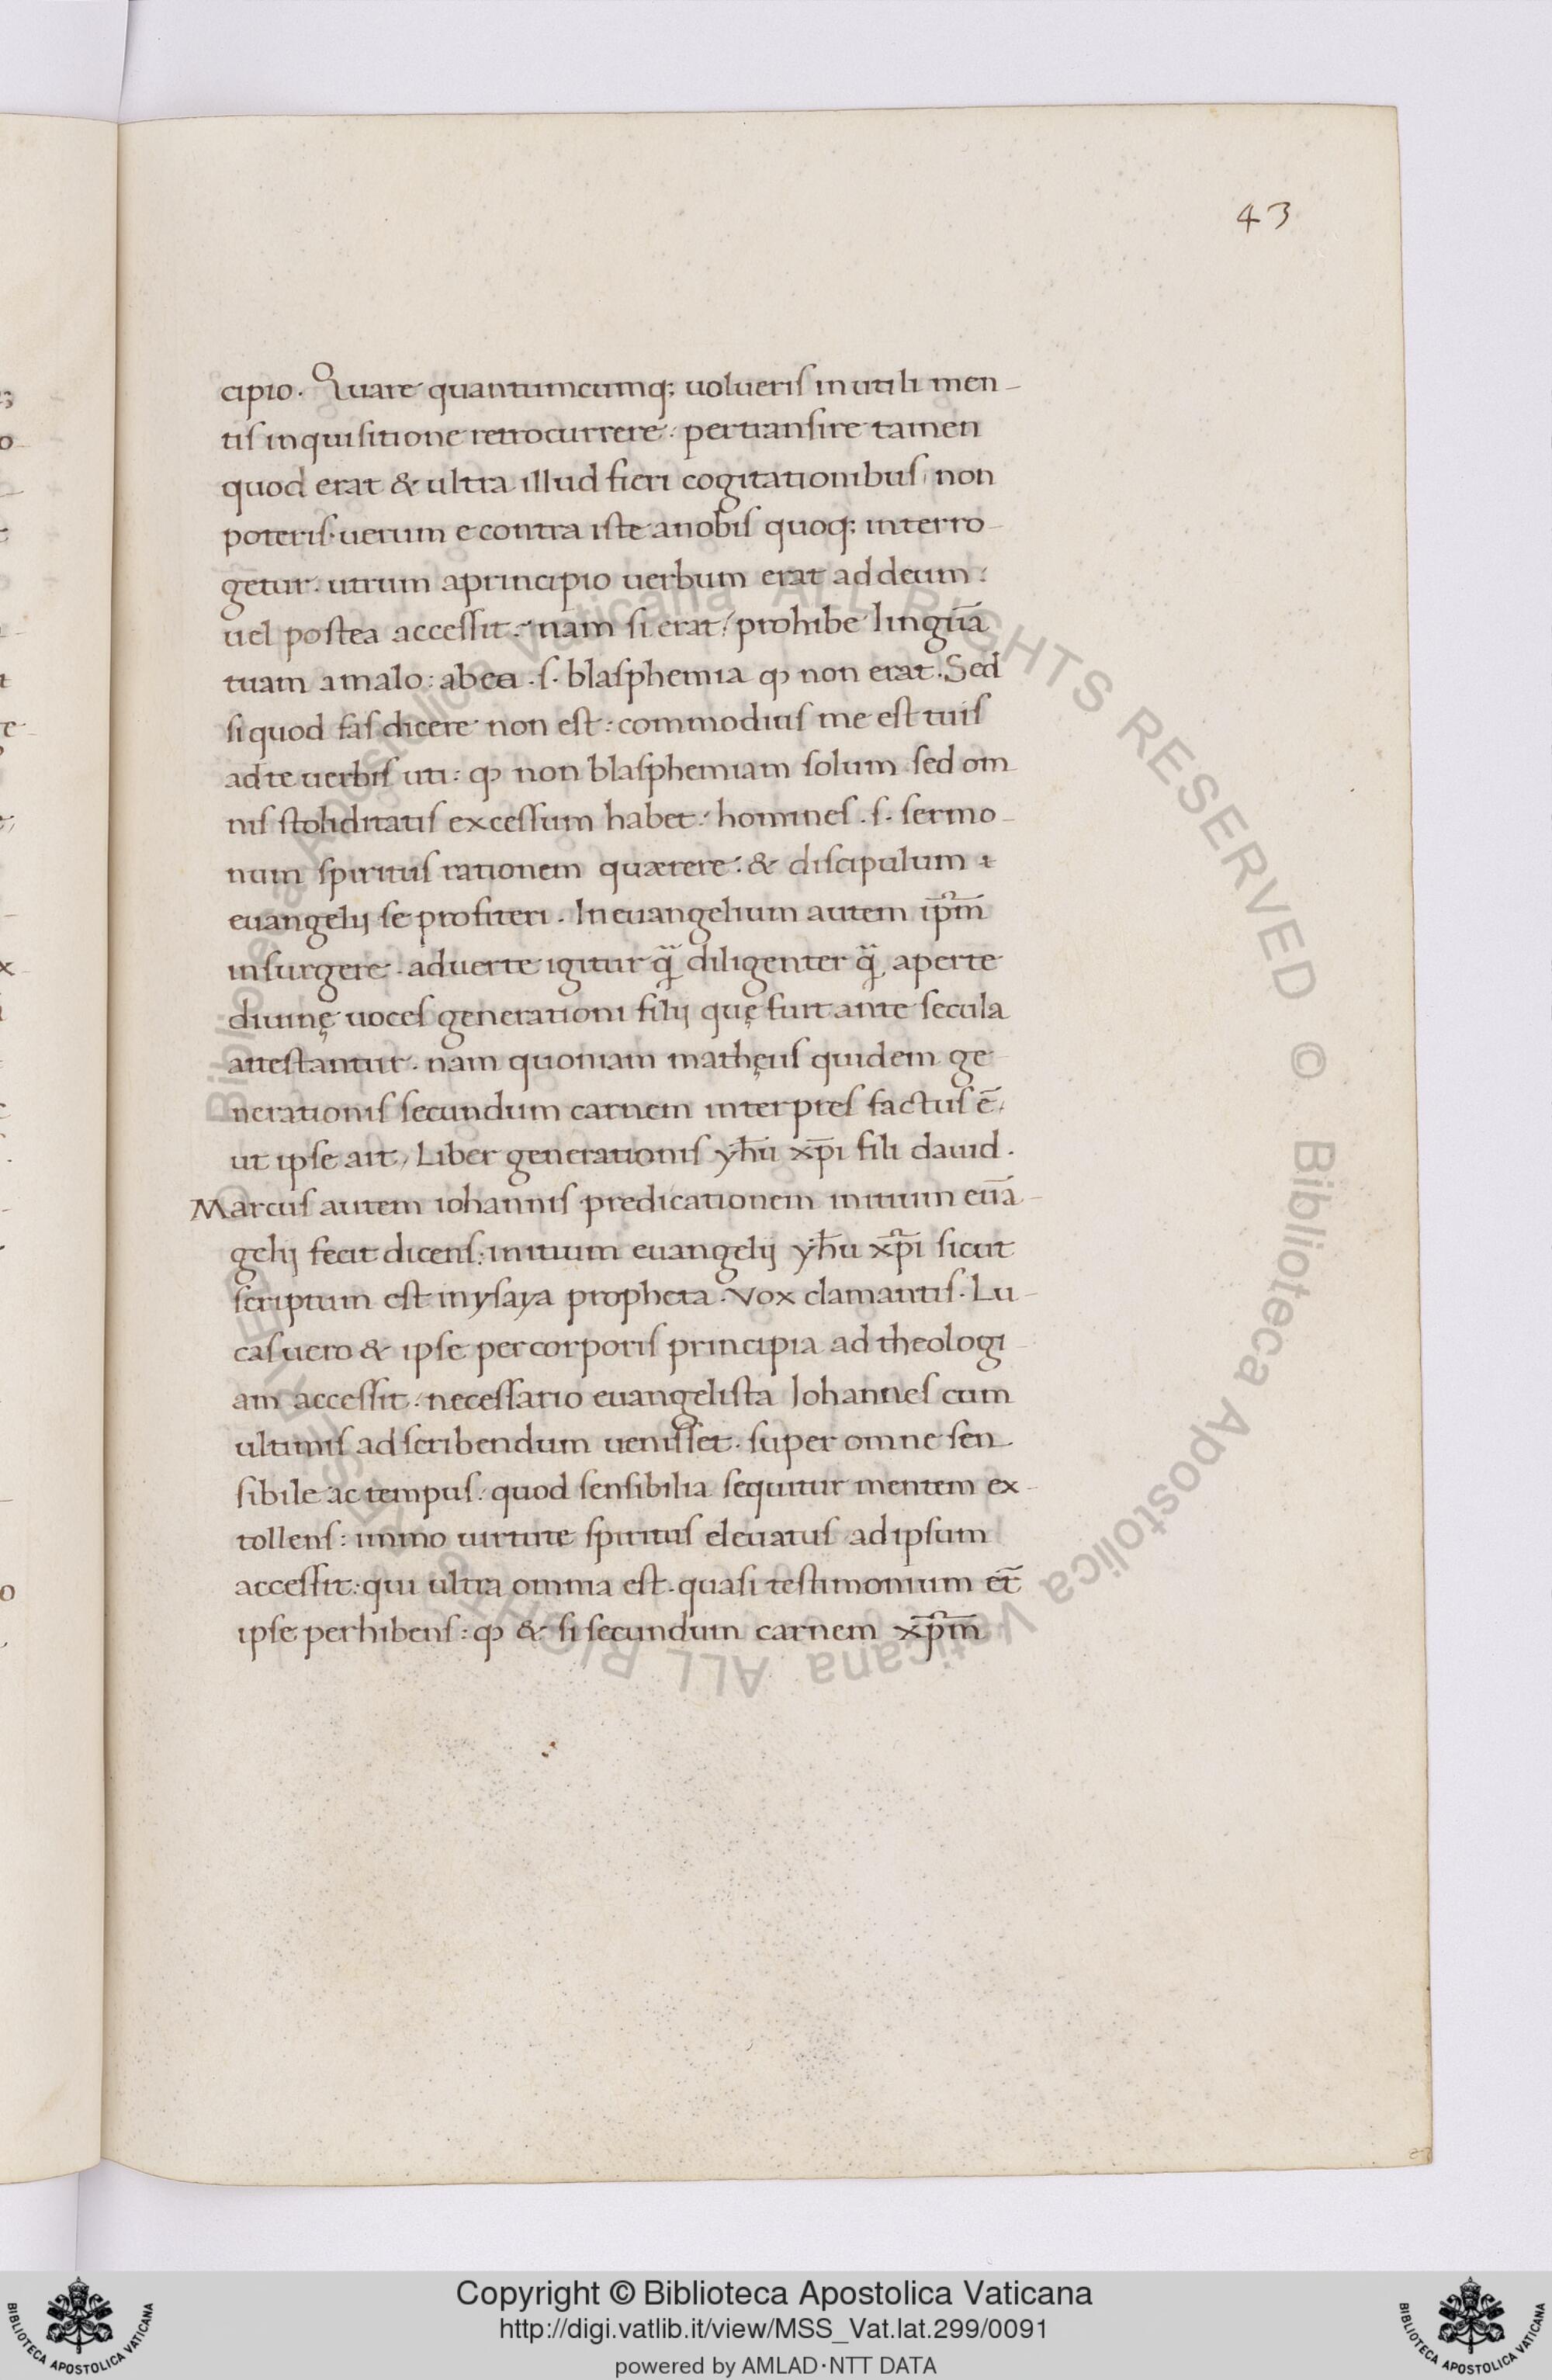 43
cipio. Quare quantumcumq; uolueris in utili men-
tis inquisitione retrocurrere: pertransire tamen
quod erat & ultra illud fieri cogitationibus non
poteris. uerum e contra iste anobis quoq; interro-
getur. utrum aprincipio uerbum erat ad deum:
uel postea accessit: nam si erat: prohibe linguā
tuam amalo: ab ea .s. blasphemia ꝙ non erat. Sed
si quod fas dicere non est: commodius me est tuis
ad te uerbis uti: ꝙ non blasphemiam solum sed om
nis stoliditatis excessum habet: homines .s. sermo-
num spiritus rationem quærere: & discipulum
euangelij se profiteri. In euangelium autem ip̄m
insurgere. aduerte igitur q̄ diligenter q̄ aperte
diuinę uoces generationi filij quę fuit ante secula
attestantur. nam quoniam mathęus quidem ge-
nerationis secundum carnem interpres factus ē,
ut ipse ait, Liber generationis yħu xp̄i fili dauid.
Marcus autem iohannis predicationem initium euā-
gelij fecit dicens: initium euangelij yħu xp̄i sicut
scriptum est in ysaya propheta. Vox clamantis. Lu-
cas uero & ipse per corporis principia ad theologi-
am accessit: necessario euangelista Iohannes cum
ultimis ad scribendum uenisset. super omne sen-
sibile ac tempus. quod sensibilia sequitur mentem ex-
tollens: immo uirtute spiritus eleuatus ad ipsum
accessit: qui ultra omnia est. quasi testimonium et̄
ipse perhibens: ꝙ & si secundum carnem xp̄m
© Biblioteca Apostolica Vaticana ALL RIGHTS RESERVED © Biblioteca Apostolica Vaticana ALL RIGHTS RESERVED
Copyright © Biblioteca Apostolica Vaticana
http://digi.vatlib.it/view/MSS_Vat.lat.299/0091
powered by AMLAD·NTT DATA
BIBLIOTECA APOSTOLICA VATICANA
BIBLIOTECA APOSTOLICA VATICANA